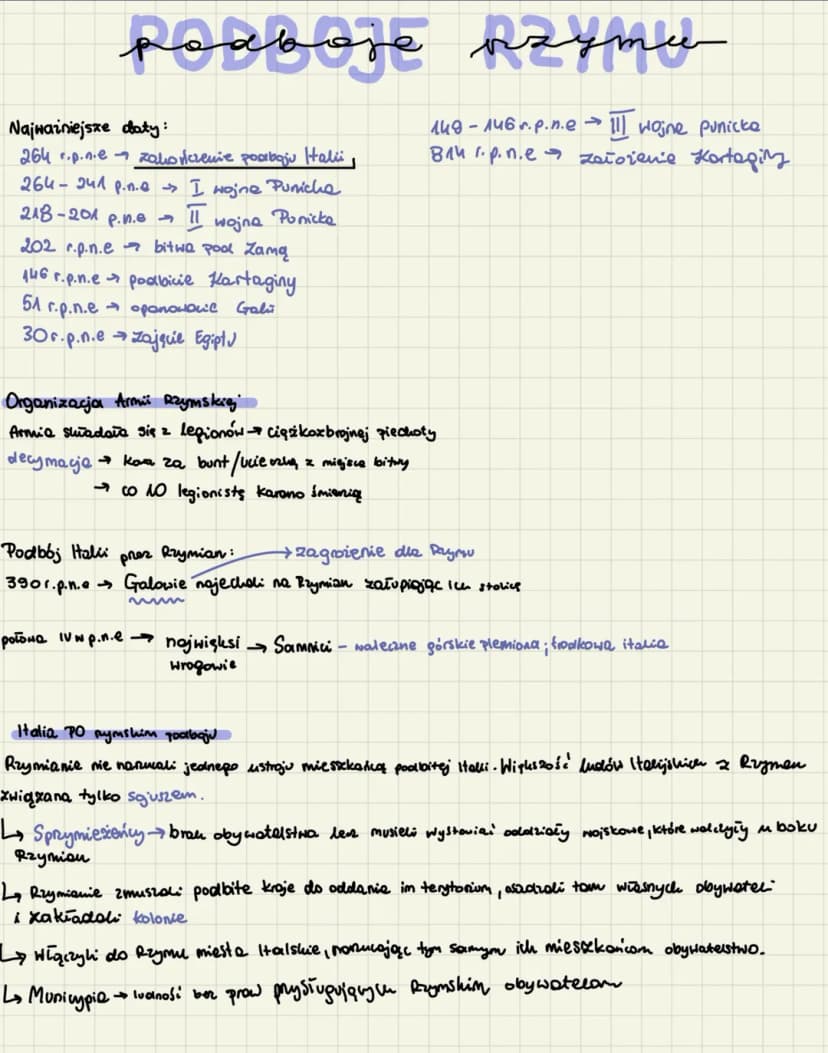 PODBOJE RZYMU
podboje rzymu
Najważniejsze daty:
264 r.p.n.e → zakończenie podboju Italii
264 - 241 p.n.e → I wojna Punicka
218 - 201 p.n.e → II wojna Punicka
202 r.p.n.e → bitwa pod Zamą
146 r.p.n.e → podbicie Kartaginy
51 r.p.n.e → opanowanie Galii
30 r.p.n.e → zajęcie Egiptu
149 - 146 r.p.n.e → III wojna punicka
814 r.p.n.e → założenie Kartaginy
Organizacja Armii Rzymskiej
Armia składała się z legionów → ciężkozbrojnej piechoty
decymacja → kara za bunt/ucieczkę z miejsca bitwy
→ co 10 legionistę karano śmiercią
Podbój Italii przez Rzymian: → zagrożenie dla Rzymu
390 r.p.n.e → Galowie najechali na Rzymian załupiając ich stolicę
połowa IV w p.n.e → najwięksi → Samnici - waleczne górskie plemiona; środkowa italia
wrogowie
Italia PO rzymskim podboju
Rzymianie nie narzucali jednego ustroju mieszkańcą podbitej Italii. Większość ludów Italijskich z Rzymem
związana tylko sojuszem.
↳ Sprzymieżeńcy → brak obywatelstwa lecz musieli wystawiać oddziały wojskowe, które walczyły u boku
Rzymian
↳ Rzymianie zmuszali podbite kraje do oddania im terytorium, osadzali tam własnych obywateli
i zakładali kolonie
↳ Włączyli do Rzymu miasta Italskie, narzucając tym samym ich mieszkańcom obywatelstwo.
↳ Municypia → ludność bez praw przysługujących Rzymskim obywatelom